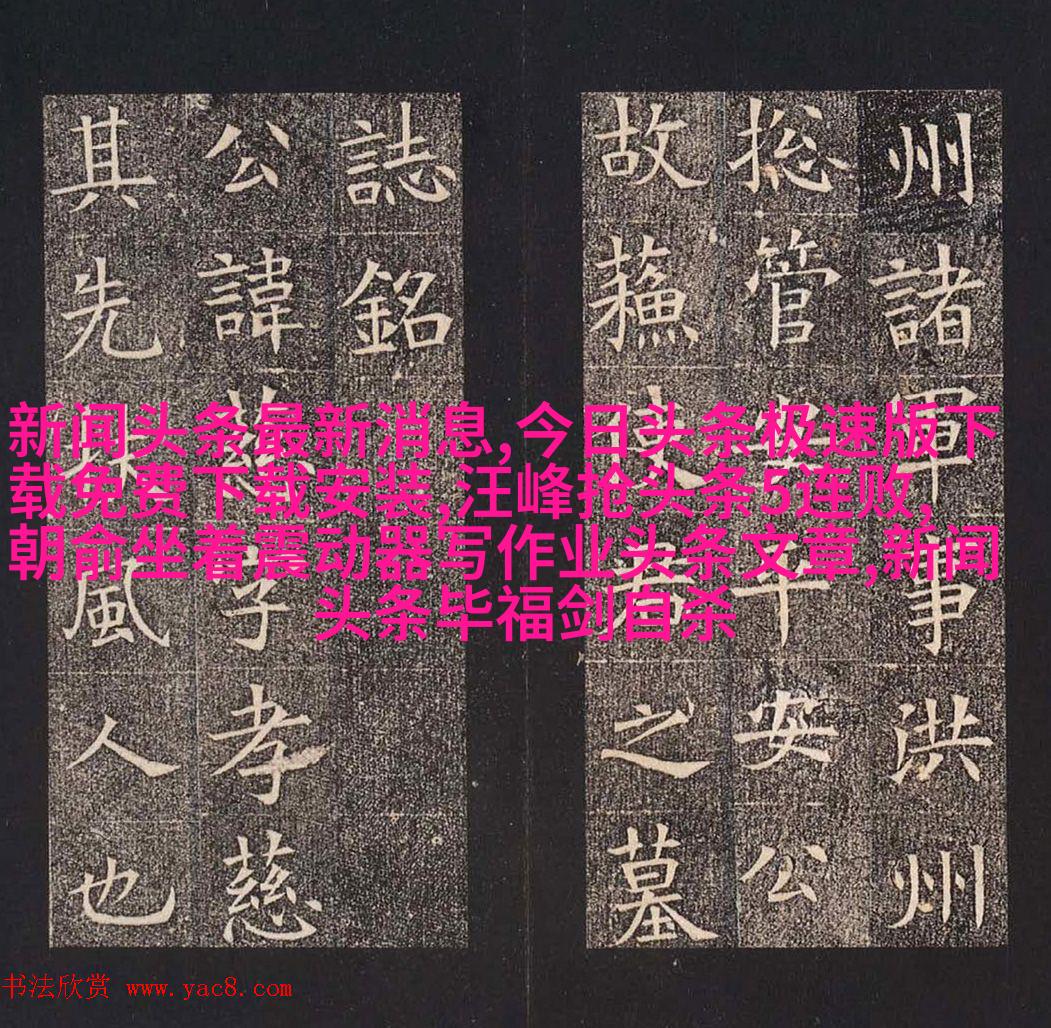 州諸軍事洪州
捴管平安公
故蘓使君之墓
誌銘
公諱慈字孝慈
其先風人也
新闻头条最新消息,今日头条极速版下
载免费下载安装,汪峰抢头条5连败,
朝俞坐着震动器写作业头条文章,新闻
头条毕福剑自杀
书法欣赏 www.yac8.com